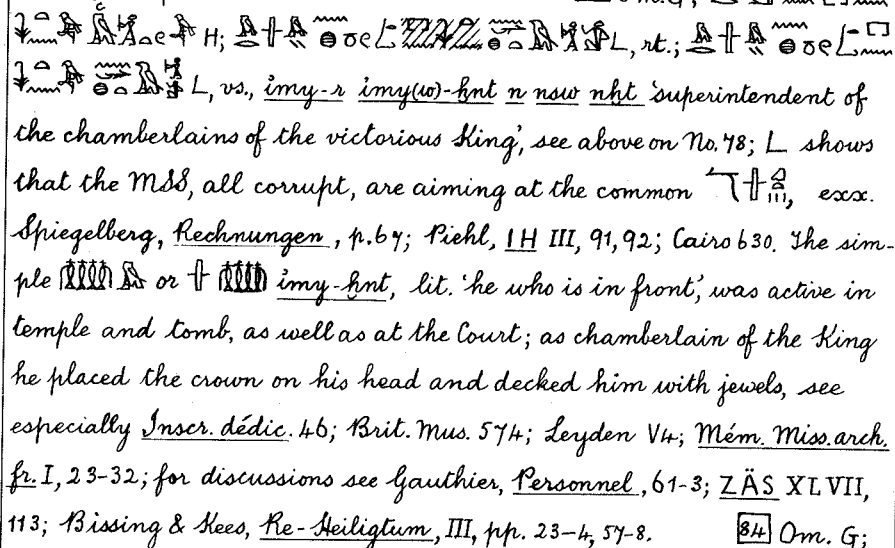 H; L, rt.;
L, vs., ỉmy-r ỉmy(w)-ḫnt n nsw nḫt 'superintendent of
the chamberlains of the victorious King', see above on No. 78; L shows
that the MSS, all corrupt, are aiming at the common , exx.
Spiegelberg, Rechnungen, p. 67; Piehl, IH III, 91, 92; Cairo 630. The sim-
ple or ỉmy-ḫnt, lit. 'he who is in front', was active in
temple and tomb, as well as at the Court; as chamberlain of the King
he placed the crown on his head and decked him with jewels, see
especially Inscr. dédic. 46; Brit. Mus. 574; Leyden V4; Mém. Miss. arch.
fr. I, 23-32; for discussions see Gauthier, Personnel, 61-3; ZÄS XLVII,
113; Bissing & Kees, Re-Heiligtum, III, pp. 23-4, 57-8. 84 Om. G;